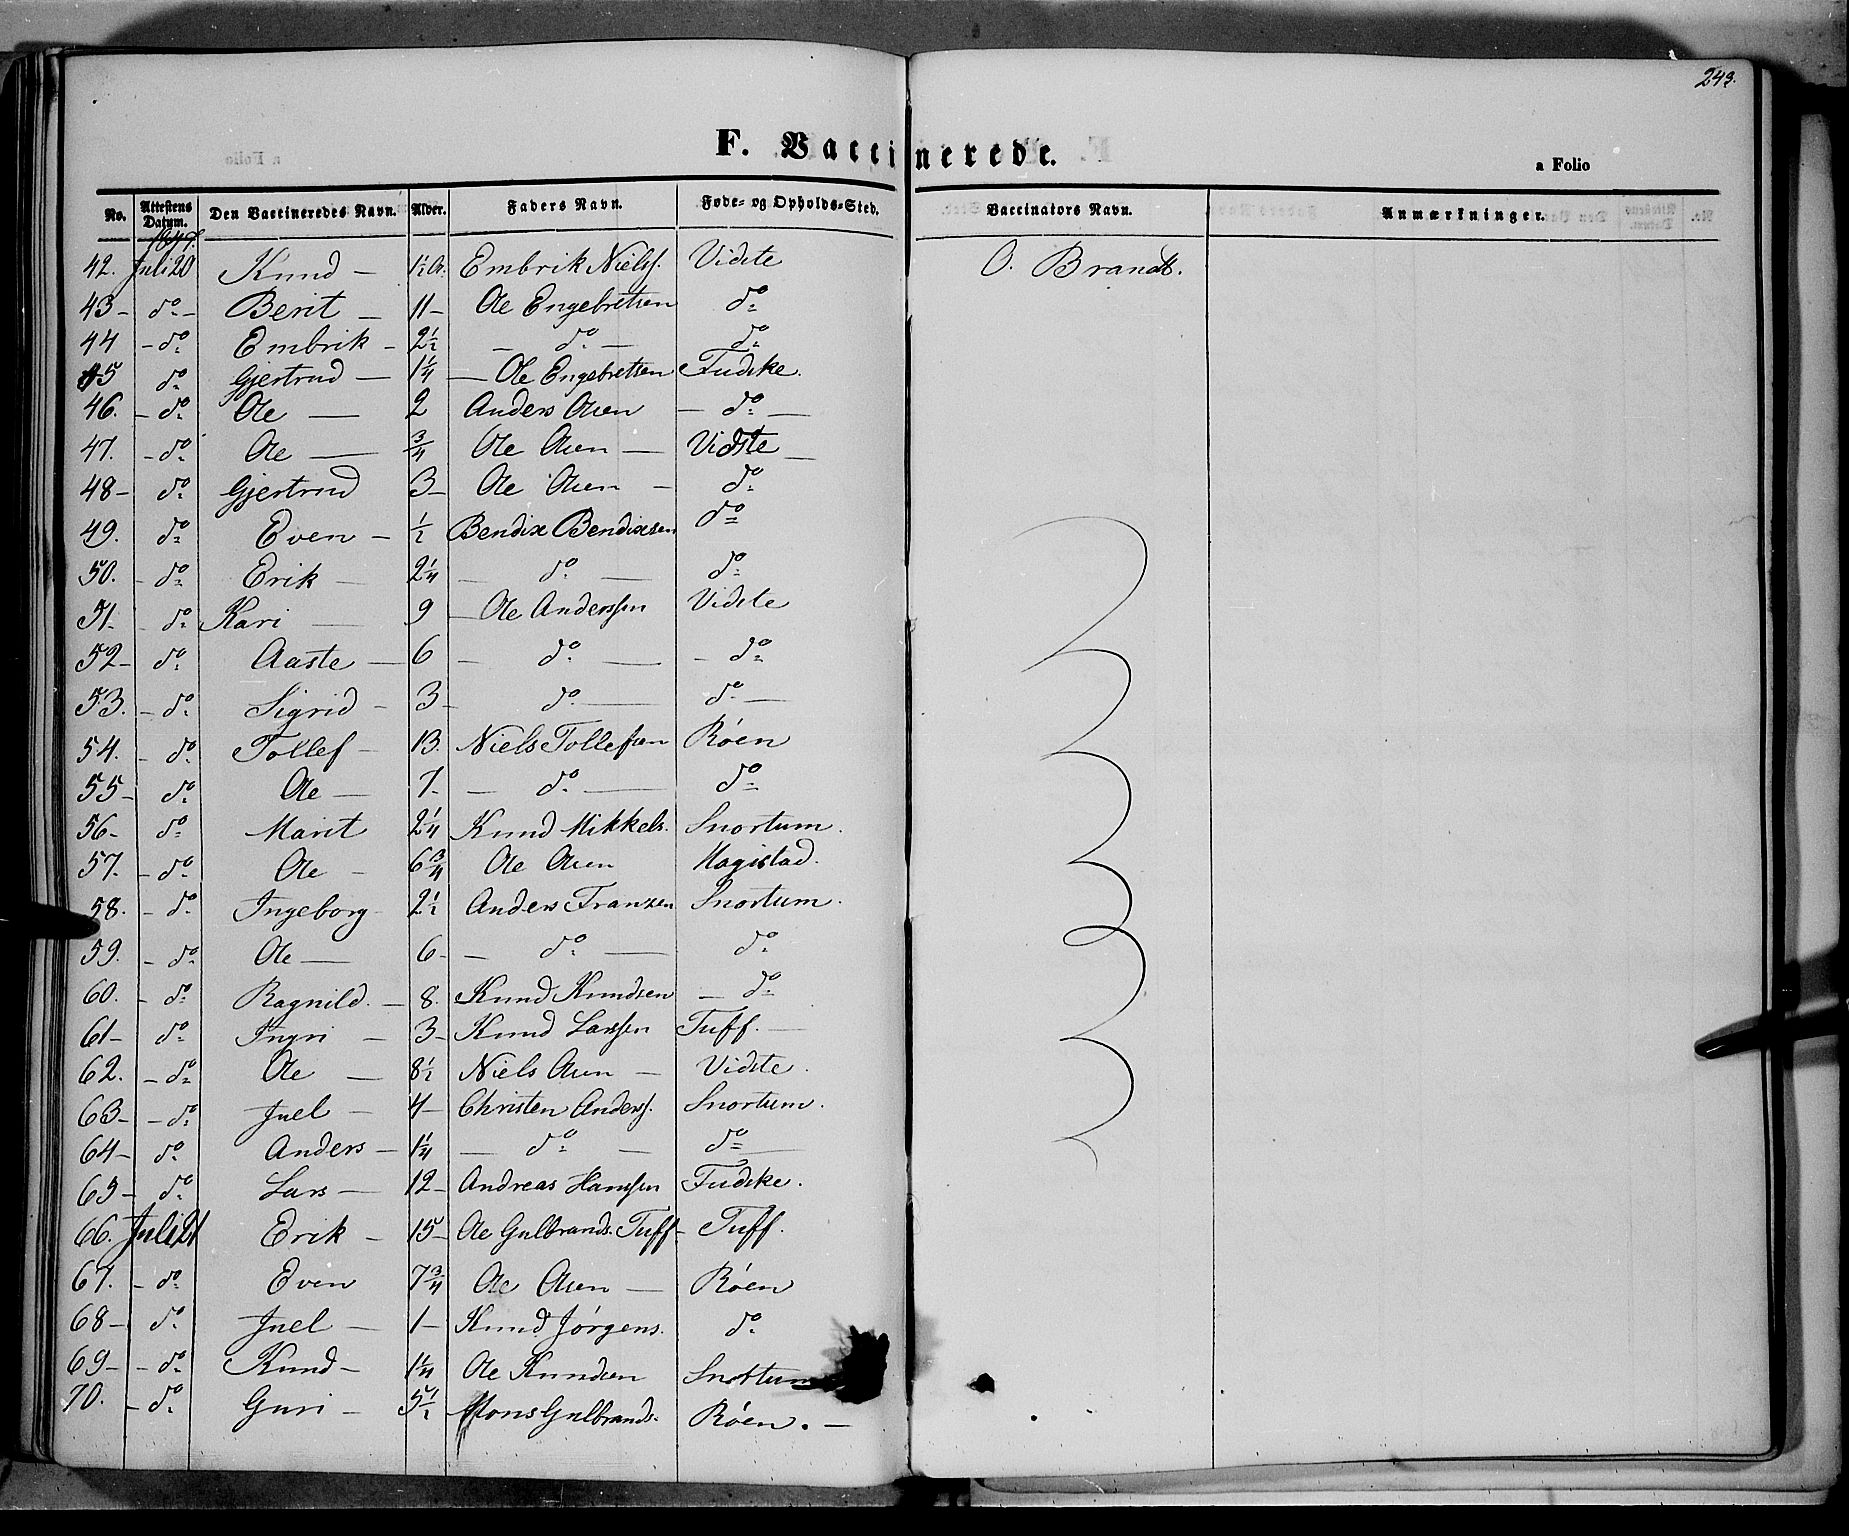 243.
F. Vaccinerede.
a Folio
No. Attestens Datum. Den Vaccineredes Navn. Alder. Faders Navn. Føde- og Opholds-Sted. Vaccinators Navn. Anmærkninger.
1847.
42. Juli 20 Knud — 1½ A. Embrik Nielss. Vidste O. Brandt.
43 – do – Berit — 11 – Ole Engebretsen do
44 – do Embrik – 2½ — do — do
45 do Gjertrud — 1¼ — Ole Engebretsen Fudske.
46. – do Ole — 2 Anders Olsen — do —
47. – do Ole — ¾ Ole Olsen — Vidste —
48 – do Gjertrud 3 – Ole Olsen — do
49. do Even – ½ Bendix Bendixsen do
50. – do Erik — 2¼ — do — do
51 – do Kari — 9 — Ole Anderssen Vidste
52 – do Aaste — 6 — do — – do
53. – do Sigrid – 3 – do — do —
54. – do Tollef – 13. Niels Tollefsen Røen
55 – do Ole — 7 – — do — do
56 – do Marit 2¼ Knud Mikkels. Snortum.
57. – do Ole – 6¾ Ole Olsen Hagistad.
58. – do Ingeborg 2½ Anders Franzen Snortum.
59. – do Ole — 6 – — do — do
60. – do Ragnild. — 8. Knud Knudsen — do
61 – do Ingri – 3 – Knud Larssen Tuff. —
62. – do Ole — 8½ Niels Olsen — Vidste.
63 – – do Juel – 4 – Christen Anderss. Snortum.
64 – do Anders – 1¼ — do — do —
65 – do Lars — 12 – Andreas Hanssen Fudske.
66. Juli 21 Erik – 15 – Ole Gulbrands. Tuff – Tuff.
67. – do Even 7¾ Ole Olsen — Røen
68 – do Juel — 1 – Knud Jørgens. do
69 – – do Knud – 1¼ Ole Knudsen Snortum
70. – do Guri – 5½ Mons Gulbrands. Røen. —